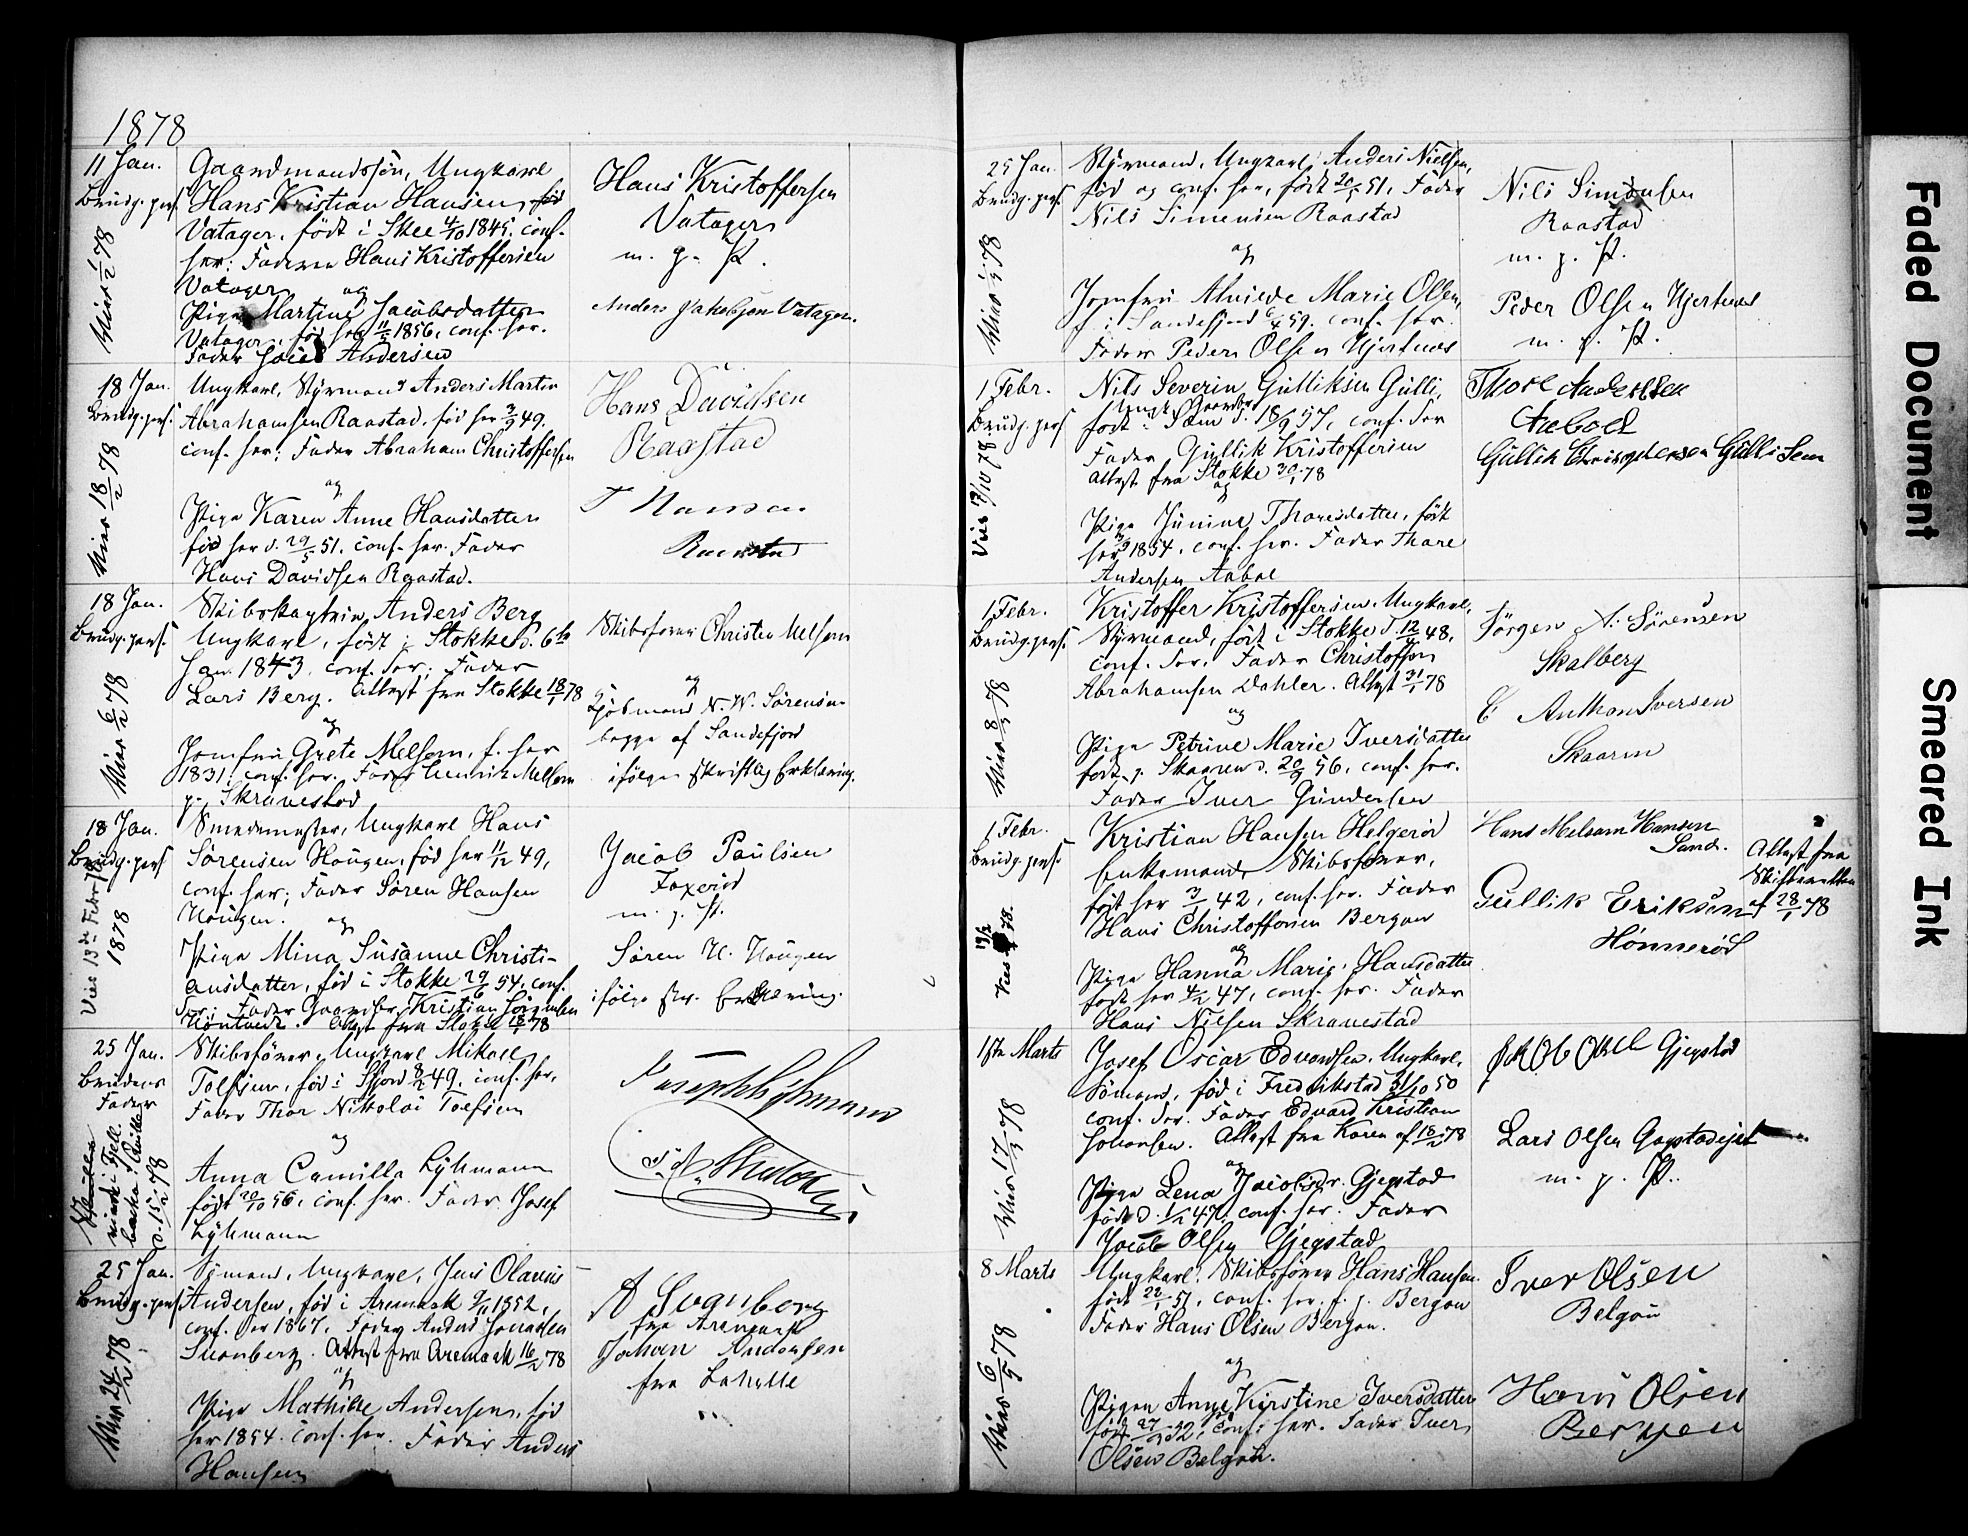 1878
11 Jan.
Brudg. pers.
Viet 1/2 78
Gaardmandssøn, Ungkarl
Hans Kristian Hansen
Vatager, født i Skee 4/10 1845, conf.
her. Faderen Hans Kristoffersen
Vatager
og
Pige Martine Jacobsdatter
Vatager, fød her 1856, conf. her.
Fader Andersen
Hans Kristoffersen
Vatager
m. p. P.
Anders Jakobsen Vatager.
18 Jan.
Brudg. pers.
Viet 18/2 78
Ungkarl, Styrmand Anders Martin
Abrahamsen Raastad, fød her 3/9 49,
conf. her; Fader Abraham Christoffersen
og
Pige Karen Anne Hansdatter
fød her d. 29/5 51, conf. her. Fader
Hans Davidsen Raastad.
Hans Davidsen
Raastad
Hansen
18 Jan.
Brudg. pers.
Viet 6/2 78
Skibskaptein Anders Berg
Ungkarl, født i Stokke d. 6te
Jan. 1843, conf. der; Fader
Lars Berg. Attest fra Stokke 18/1 78
og
Jomfru Grete Melsom, f. her
1831, conf. her. Fader Henrik Melsom
p. Skravestad
Skibsfører Christen Melsom
og
Kjøbmand N. W. Sørensen
begge af Sandefjord
ifølge skriftlig Erklæring.
18 Jan.
Brudg. pers
Viet 13de Febr
1878
Smedemester, Ungkarl Hans
Sørensen Hougen, fød her 11/12 49,
conf. her; Fader Søren Hansen
Hougen. og
Pige Mina Susanne Christi-
ansdatter, fød i Stokke 29/6 54, conf.
der; Fader Gaardbr. Kristian
Attest fra Stokke 18/1 78
Jacob Paulsen
Foxerød
m. p. P.
Søren H. Hougen
ifølge skr. Erklæring.
25 Jan.
Brudens
Fader
viede i Fjell.
d. 15/2 78
Skibsfører, Ungkarl Mikael
Tolfsen, fød i 8/2 49, conf. her,
Fader Thor Nikolai Tolfsen
og
Anna Camilla Lyhmann
født 20/10 56, conf. her. Fader Josef
Lyhmann
25 Jan.
Brudg. pers
Viet 24/2 78
Sømand, Ungkarl, Jens Olavus
Andersen, fød i Aremark 1852,
conf. der 1867, Fader Anders
Svanberg. Attest fra Aremark 16/2 78
og
Pige Mathilde Andersen, fød
her 1854. conf. her. Fader Anders
Hansen
A Svanberg
fra Aremark
Johan Andersen
fra
25 Jan.
Brudg. pers.
Styrmand, Ungkarl, Anders Nielsen,
fød og conf. her, født 20/5 51, Fader
Nils Simensen Raastad
og
Jomfru Alvilde Marie Olsen,
f. i Sandefjord 59. conf. her.
Fader Peder Olsen Hjertnes
Nils Simonsen
Raastad
m. p. P.
Peder Olsen Hjertnes
m. p. P.
1 Febr.
Brudg. pers
Nils Severin Gulliksen Gulli,
Ungk. Gaardbr
født i Sem d. 18/9 57, conf. der
Fader Gullik Kristoffersen
Attest fra Stokke 30/1 78
og
Pige Junine Thoresdatter, født
her 1854, conf. her. Fader Thore
Andersen Aabol
Thore Andersen
Aabol
Gullik Christofersen Gulli Sem
1 Febr.
Brudg. pers.
Viet 8/3 78
Kristoffer Kristoffersen, Ungkarl,
Styrmand, født i Stokke d. 12/4 48,
conf. der. Fader Christoffer
Abrahamsen Dahler. Attest 31/1 78
og
Pige Petrine Marie Iversdatter
født p. Skaaren d. 20/9 56, conf. her.
Fader Iver Gundersen
Jørgen A. Sørensen
Skalberg
Anthon Iversen
Skaaren
1 Febr.
Brudg. pers.
Kristian Hansen Helgerød
Enkemand, Skibsfører,
født her 3/1 42, conf. her. Fader
Hans Christoffersen Bergan
og
Pige Hanna Marie Hansdatter
født her 4/2 47, conf. her. Fader
Hans Nielsen Skravestad
Hans Melsom Hansen
Sand.
Gullik Eriksen
Hønnerød
Attest fra
Skifteretten
af 28/1 78
1ste Marts
Viet 17/3 78
Josef Oscar Edvardsen, Ungkarl,
Sømand, fød i Fredrikstad 31/10 50
conf. der. Fader Edvard Kristian
Johansen. Attest fra Karen af 18/2 78
og
Pige Lena Jacobsdr. Gjegstad
født d. 1/2 47, conf. her. Fader
Jacob Olsen Gjegstad
Gjegstad
Lars Olsen Gogstadejet
m. p. P.
8 Marts
Viet 6/5 78
Ungkarl, Skibsfører Hans Hansen
født 22/1 51, conf. her, f. p. Bergan
Fader Hans Olsen Bergan.
og
Pigen Anne Kirstine Iversdatter
født 27/ 52, conf. her. Fader Iver
Olsen Belgau.
Iver Olsen
Belgau
Hans Olsen
Bergen
Faded Document
Smeared Ink